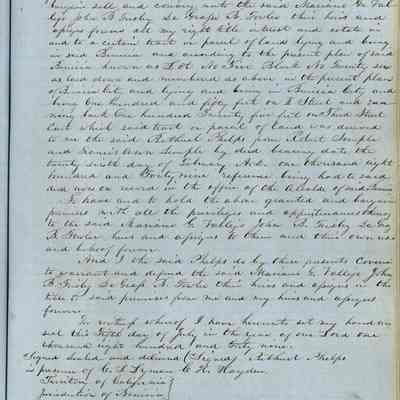 bargain sell and convey unto the said Mariano G. Val-
lejo John B. Frisby De Grass B. Fowler their heirs and
assigns forever all my right title interest and estate in
and to a certain tract or parcel of land lying and being
in said Benicia and according to the present plan of said
Benicia known as Lot No Five Block No Twenty six
as laid down and numbered as above in the present plan
of Benicia City and lying and being in Benicia City and
being one hundred and fifty feet on I Street and run-
ning back One hundred Twenty five feet on Third
East which said tract or parcel of land was deeded
to me the said Bethuel Phelps from Robert Semple
and Francis Semple by deed bearing date the
twenty sixth day of February A.D. one thousand eight
hundred and Forty nine reference being had to said
and now on record in the office of the Alcalde of said Benicia
To have and to hold the above granted and bargain
premises with all the privileges and appurtenances thereof
to the said Mariano G. Vallejo John B. Frisby De Grass
B. Fowler heirs and assigns to them and their own use
and behoof forever.
And I the said Phelps do by these presents Covena
to warrant and defend the said Mariano G. Vallejo John
B. Frisby De Grass B. Fowler their heirs and assigns in the
title to said premises from me and my heirs and assigns
forever.
In witness whereof I have hereunto set my hand and
seal this Fifth day of July in the year of our Lord one
thousand eight hundred and forty nine.
Signed Sealed and delivered (Signed) Bethuel Phelps
in presence of C. P. Wayden
Territory of California
Jurisdiction of Benicia